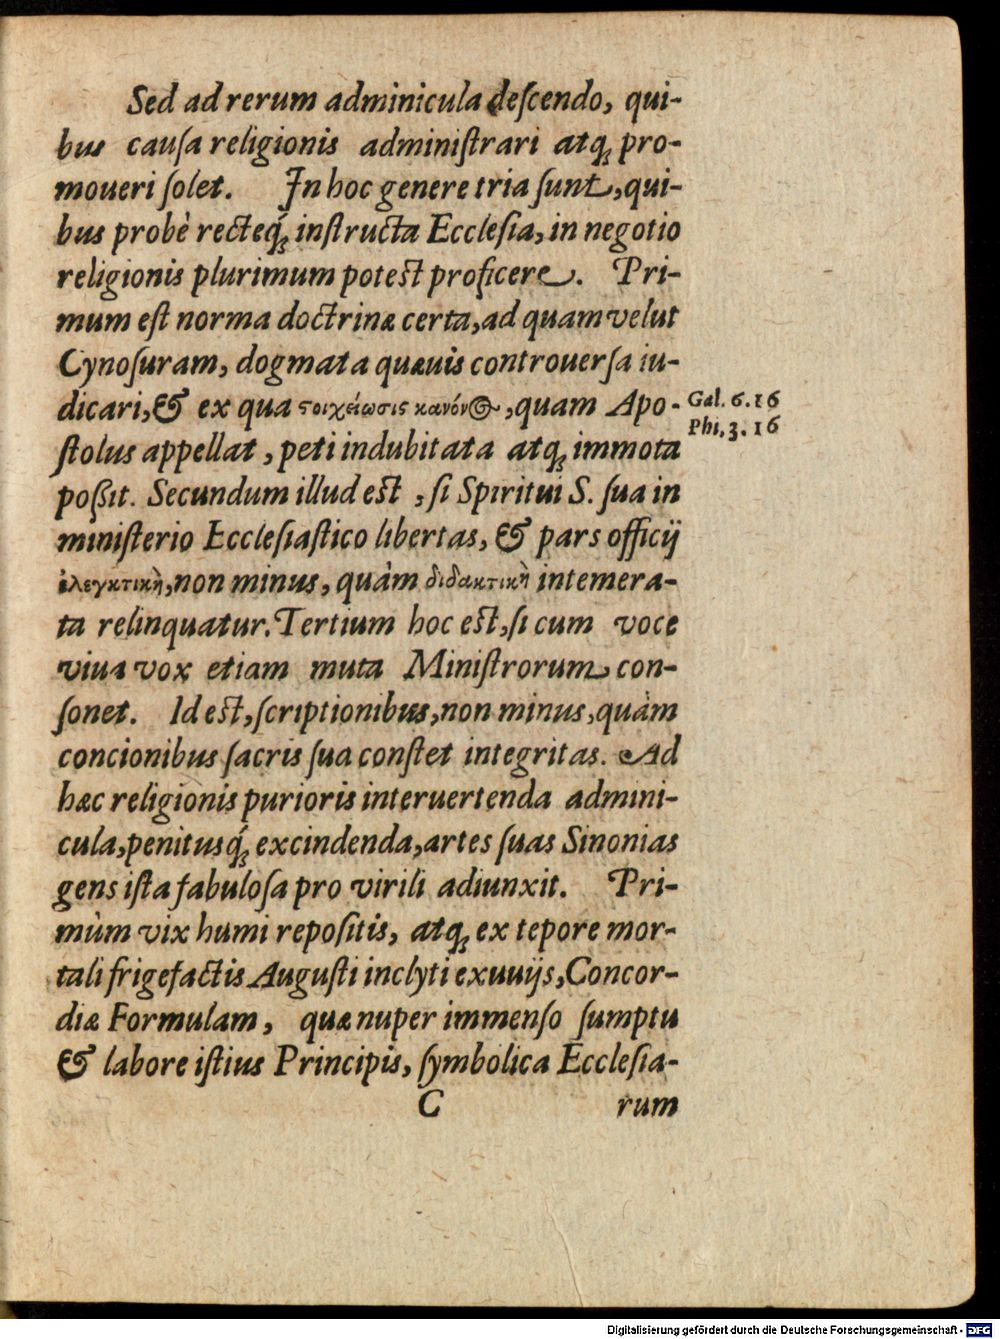 Sed ad rerum adminicula deſcendo, qui-
bus cauſa religionis adminiſtrari atq́ꝫ pro-
moueri ſolet. In hoc genere tria ſunt, qui-
bus probè recteq́ꝫ inſtructa Eccleſia, in negotio
religionis plurimum poteſt proficere. Pri-
mum eſt norma doctrinæ certa, ad quam velut
Cynoſuram, dogmata quæuis controuerſa iu-
dicari, & ex qua ςοιχείωσις κανόν⊙, quam Apo-
Gal. 6. 16
Phi. 3. 16
ſtolus appellat, peti indubitata atqꝫ immota
poßit. Secundum illud eſt, ſi Spiritui S. ſua in
miniſterio Eccleſiaſtico libertas, & pars officij
ἐλεγκτικὴ, non minus, quàm διδακτικὴ intemera-
ta relinquatur. Tertium hoc eſt, ſi cum voce
viua vox etiam muta Miniſtrorum con-
ſonet. Id eſt, ſcriptionibus, non minus, quàm
concionibus ſacris ſua conſtet integritas. Ad
hæc religionis purioris interuertenda admini-
cula, penitusq́ꝫ excindenda, artes ſuas Sinonias
gens iſta fabuloſa pro virili adiunxit. Pri-
mùm vix humi repoſitis, atqꝫ ex tepore mor-
tali frigefactis Auguſti inclyti exuuijs, Concor-
diæ Formulam, quæ nuper immenſo ſumptu
& labore iſtius Principis, ſymbolica Eccleſia-
C rum
Digitalisierung gefördert durch die Deutsche Forschungsgemeinschaft - DFG